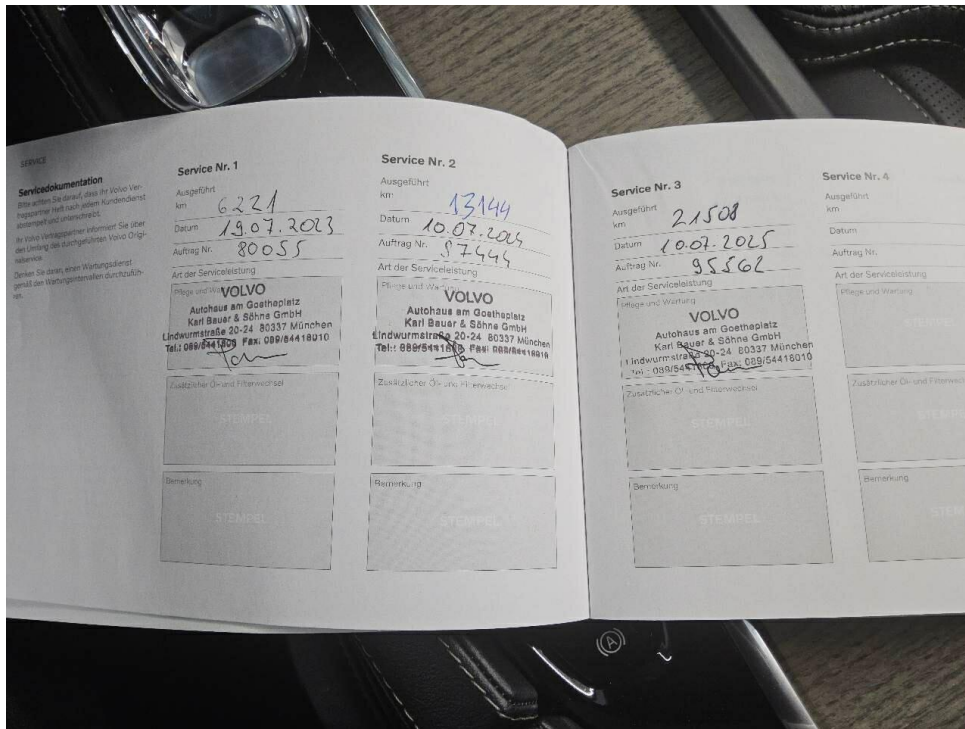 SERVICE
Servicedokumentation
Bitte achten Sie darauf, dass Ihr Volvo Ver-
tragspartner Heft nach jedem Kundendienst
abstempelt und unterschreibt.
Ihr Volvo Vertragspartner informiert Sie über
den Umfang des durchgeführten Volvo Origi-
nalservice.
Denken Sie daran, einen Wartungsdienst
gemäß den Wartungsintervallen durchzufüh-
ren.
Service Nr. 1
Ausgeführt
km 6221
Datum 19.07.2023
Auftrag Nr. 80055
Art der Serviceleistung
Pflege und Wartung
VOLVO
Autohaus am Goetheplatz
Karl Bauer & Söhne GmbH
Lindwurmstraße 20-24 80337 München
Tel.: 089/5441806 Fax: 089/54418010
Zusätzlicher Öl- und Filterwechsel
STEMPEL
Bemerkung
STEMPEL
Service Nr. 2
Ausgeführt
km 13144
Datum 10.07.2024
Auftrag Nr. 87444
Art der Serviceleistung
Pflege und Wartung
VOLVO
Autohaus am Goetheplatz
Karl Bauer & Söhne GmbH
Lindwurmstraße 20-24 80337 München
Tel.: Fax: 089/54418010
Zusätzlicher Öl- und Filterwechsel
STEMPEL
Bemerkung
STEMPEL
Service Nr. 3
Ausgeführt
km 21508
Datum 10.07.2025
Auftrag Nr. 95562
Art der Serviceleistung
Pflege und Wartung
VOLVO
Autohaus am Goetheplatz
Karl Bauer & Söhne GmbH
Lindwurmstraße 20-24 80337 München
Tel.: Fax: 089/54418010
Zusätzlicher Öl- und Filterwechsel
STEMPEL
Bemerkung
STEMPEL
Service Nr. 4
Ausgeführt
km
Datum
Auftrag Nr.
Art der Serviceleistung
Pflege und Wartung
STEMPEL
Zusätzlicher Öl- und Filterwechsel
STEMPEL
Bemerkung
STEM
A